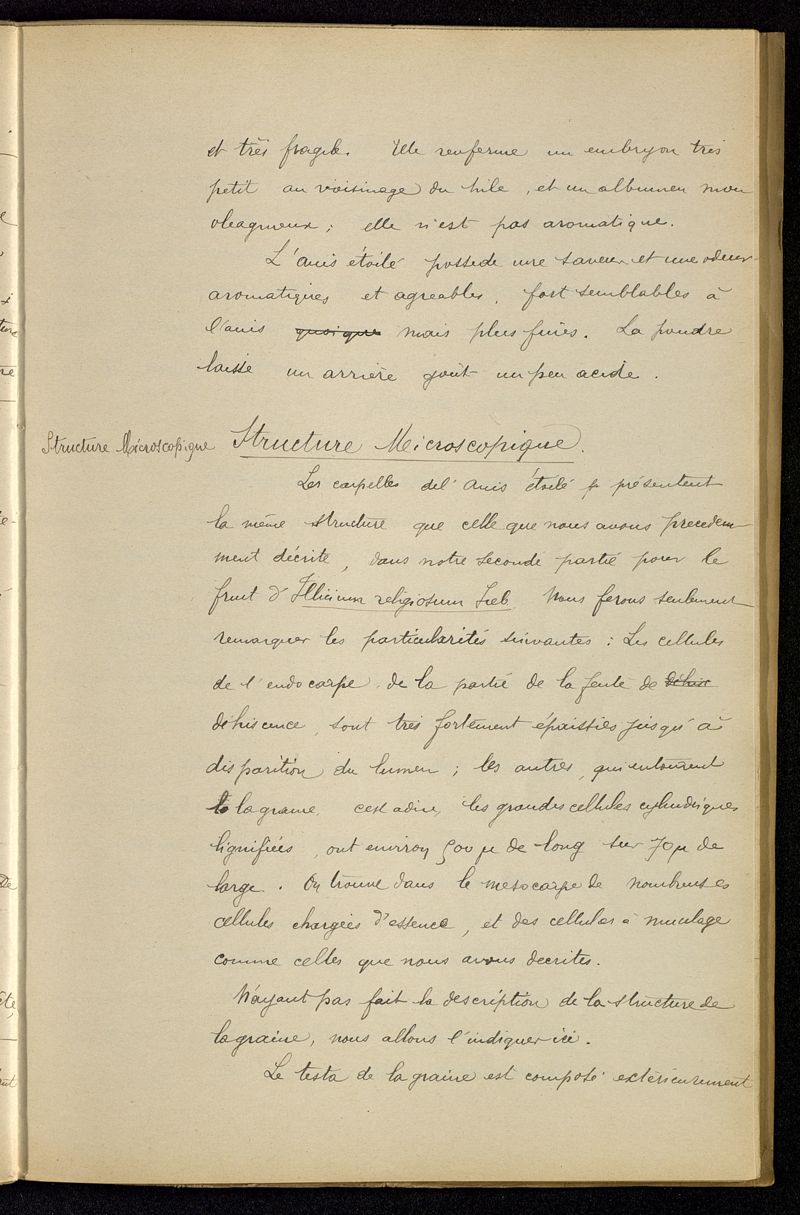 et très fragile. Elle renferme un embryon très
petit au voisinage du hile, et un albumen mou
oleagineux; elle n'est pas aromatique.
L'anis étoilé possède une saveur et une odeur
aromatiques et agreables, fort semblables à
l'anis quoique mais plus fines. La poudre
laisse un arrière goût un peu acide.
Structure Microscopique
Structure Microscopique.
Les carpelles de l'Anis étoilé présentent
la même structure que celle que nous avons precedem-
ment décrite, dans notre seconde partie pour le
fruit d'Illicium religiosum Sieb. Nous ferons seulement
remarquer les particularités suivantes: Les cellules
de l'endocarpe de la partie de la fente de déhis
dehiscence, sont très fortement épaissies jusqu'à
disparition du lumen; les autres, qui entourent
la graine, cest adire, les grandes cellules cylindriques
lignifiées, ont environ 500 µ de long sur 70 µ de
large. On trouve dans le mesocarpe de nombreuses
cellules chargées d'essence, et des cellules à mucilage
comme celles que nous avons decrites.
N'ayant pas fait la description de la structure de
la graine, nous allons l'indiquer ici.
Le testa de la graine est composé extérieurement